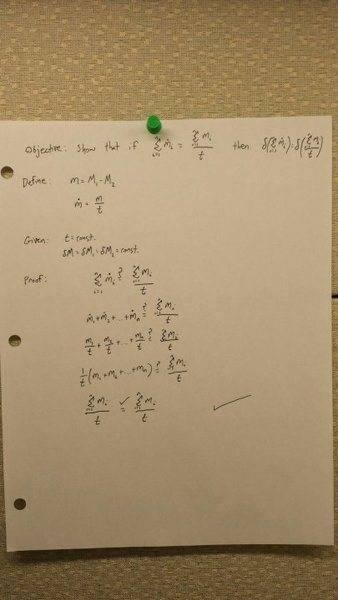 Objective: Show that if \sum_{i=1}^{n} ṁ_i = \frac{\sum_{i=1}^{n} m_i}{t} then δ(\sum_{i=1}^{n} ṁ_i) = δ(\frac{\sum_{i=1}^{n} m_i}{t})
Define: m = M_1 - M_2
ṁ = \frac{m}{t}
Given: t = const.
δM = δM_1 = δM_2 = const.
Proof: \sum_{i=1}^{n} ṁ_i ?= \frac{\sum_{i=1}^{n} m_i}{t}
ṁ_1 + ṁ_2 + ... + ṁ_n ?= \frac{\sum_{i=1}^{n} m_i}{t}
\frac{m_1}{t} + \frac{m_2}{t} + ... + \frac{m_n}{t} ?= \frac{\sum_{i=1}^{n} m_i}{t}
\frac{1}{t}(m_1 + m_2 + ... + m_n) ?= \frac{\sum_{i=1}^{n} m_i}{t}
\frac{\sum_{i=1}^{n} m_i}{t} ✓= \frac{\sum_{i=1}^{n} m_i}{t} ✓